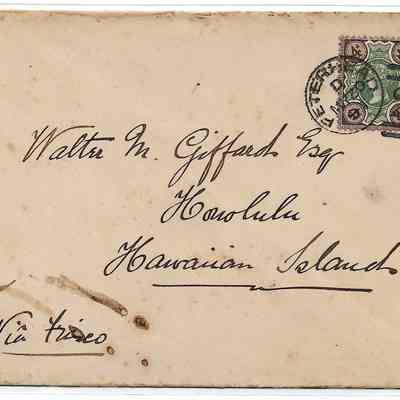 PETERHEAD
Walter M. Giffards Esq
Honolulu
Hawaiian Islands
Via Frisco